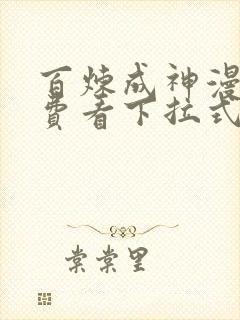 百炼成神漫
费看下拉式
棠棠里